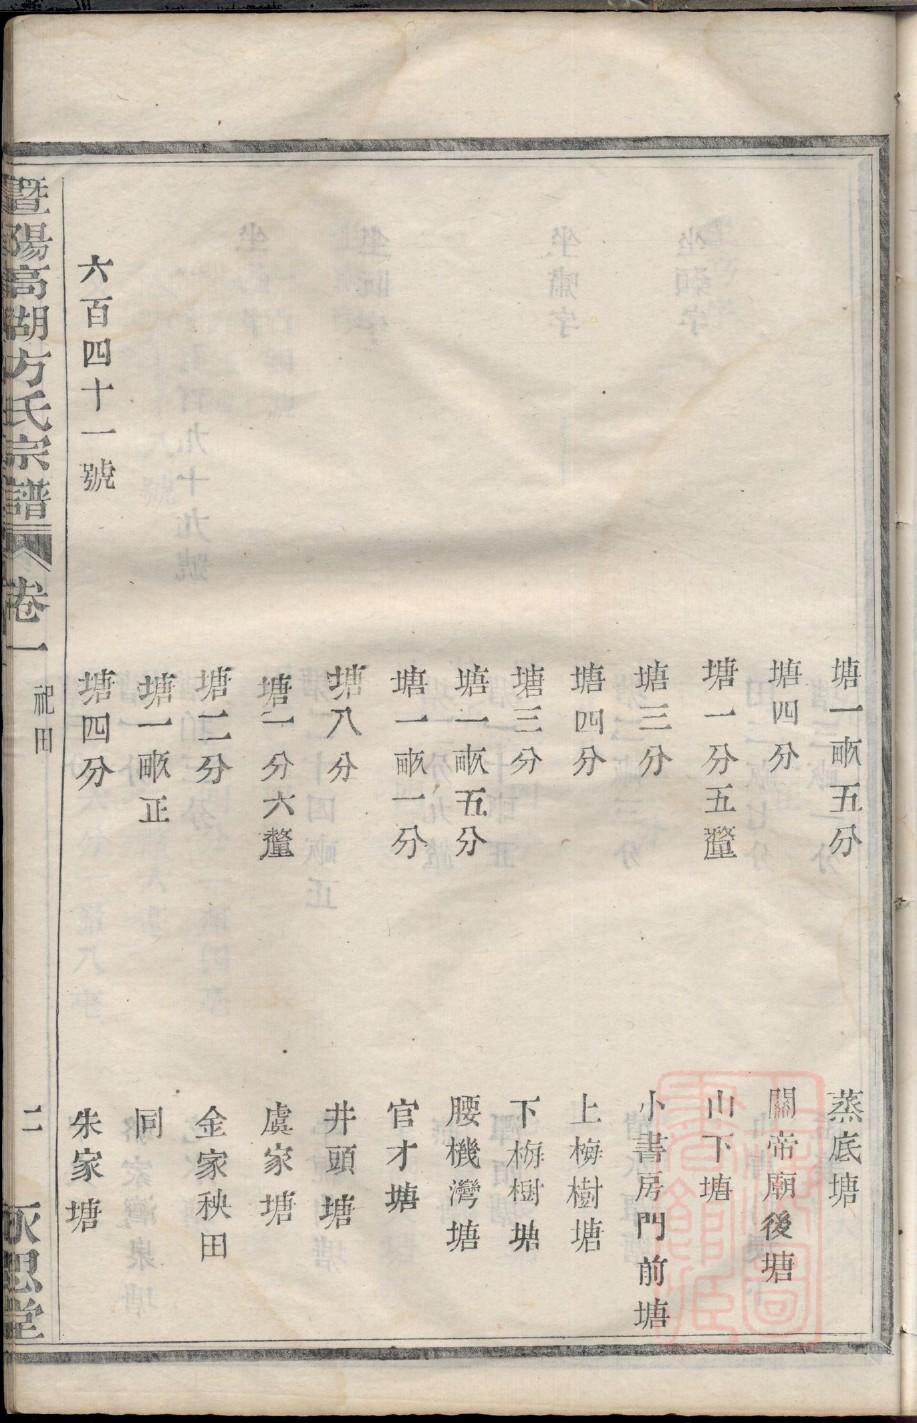 塘一畝五分 蒸底塘
塘四分 關帝廟後塘
塘一分五釐 山下塘
塘三分 小書房門前塘
塘四分 上梅樹塘
塘三分 下梅樹塘
塘一畝五分 腰機灣塘
塘一畝一分 官才塘
塘八分 井頭塘
塘一分六釐 虞家塘
塘二分 金家秧田
塘一畝正 同
六百四十一號 塘四分 朱家塘
暨陽高湖方氏宗譜 卷一 祀田 二 永思堂